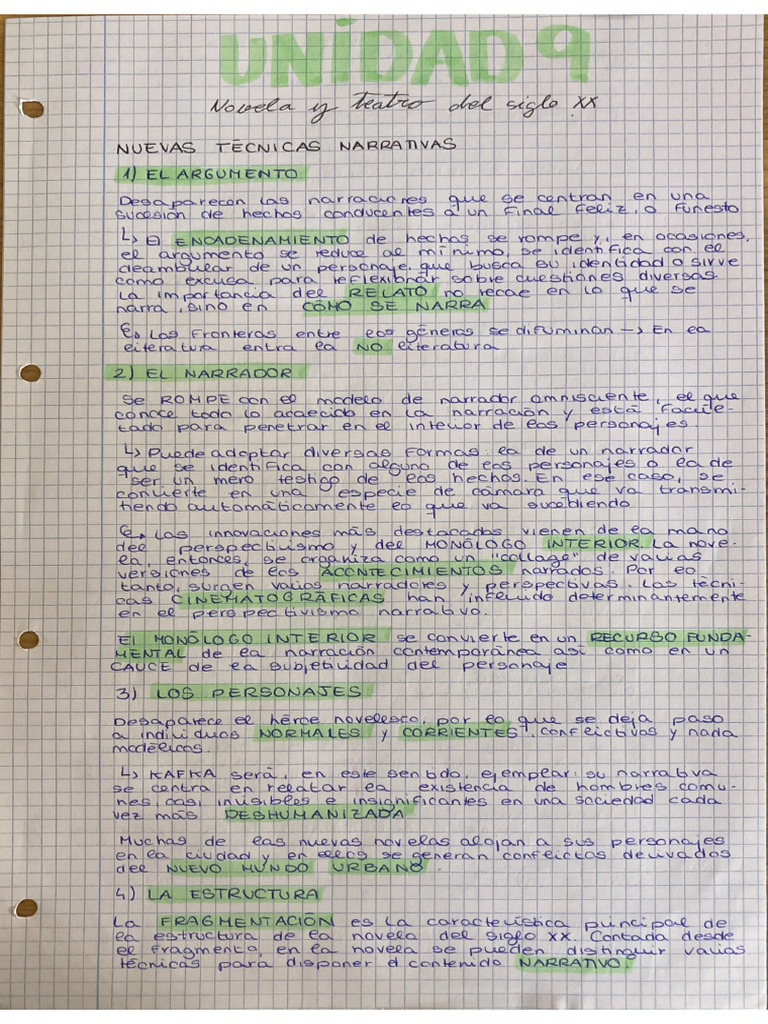 UNIDAD 9
Novela y teatro del siglo XX
NUEVAS TÉCNICAS NARRATIVAS
1) EL ARGUMENTO
Desaparecen las narraciones que se centran en una
sucesión de hechos conducentes a un final feliz o funesto
↳ El ENCADENAMIENTO de hechos se rompe y, en ocasiones,
el argumento se reduce al mínimo, se identifica con el
deambular de un personaje que busca su identidad o sirve
como excusa para reflexionar sobre cuestiones diversas.
La importancia del RELATO no recae en lo que se
narra, sino en CÓMO SE NARRA
↳ Las fronteras entre los géneros se difuminan → En la
literatura entra la NO literatura
2) EL NARRADOR
Se ROMPE con el modelo de narrador omnisciente, el que
conoce todo lo acaecido en la narración y está facul-
tado para penetrar en el interior de los personajes
↳ Puede adoptar diversas formas: la de un narrador
que se identifica con alguno de los personajes o la de
ser un mero testigo de los hechos. En ese caso, se
convierte en una especie de cámara que va transmi-
tiendo automáticamente lo que va sucediendo
↳ Las innovaciones más destacadas vienen de la mano
del perspectivismo y del MONÓLOGO INTERIOR. La nove-
la, entonces, se organiza como un "collage" de varias
versiones de los ACONTECIMIENTOS narrados. Por lo
tanto, surgen varios narradores y perspectivas. Las técni-
cas CINEMATOGRÁFICAS han influido determinantemente
en el perspectivismo narrativo.
El MONÓLOGO INTERIOR se convierte en un RECURSO FUNDA-
MENTAL de la narración contemporánea así como en un
CAUCE de la subjetividad del personaje
3) LOS PERSONAJES
Desaparece el héroe novelesco, por lo que se deja paso
a individuos NORMALES y CORRIENTES, conflictivos y nada
modélicos.
↳ KAFKA será, en este sentido, ejemplar: su narrativa
se centra en relatar la existencia de hombres comu-
nes, casi invisibles e insignificantes en una sociedad cada
vez más DESHUMANIZADA
Muchas de las nuevas novelas alojan a sus personajes
en la ciudad y en ellos se generan conflictos derivados
del NUEVO MUNDO URBANO.
4) LA ESTRUCTURA
La FRAGMENTACIÓN es la característica principal de
la estructura de la novela del siglo XX. Contada desde
el fragmento, en la novela se pueden distinguir varias
técnicas para disponer el contenido NARRATIVO.